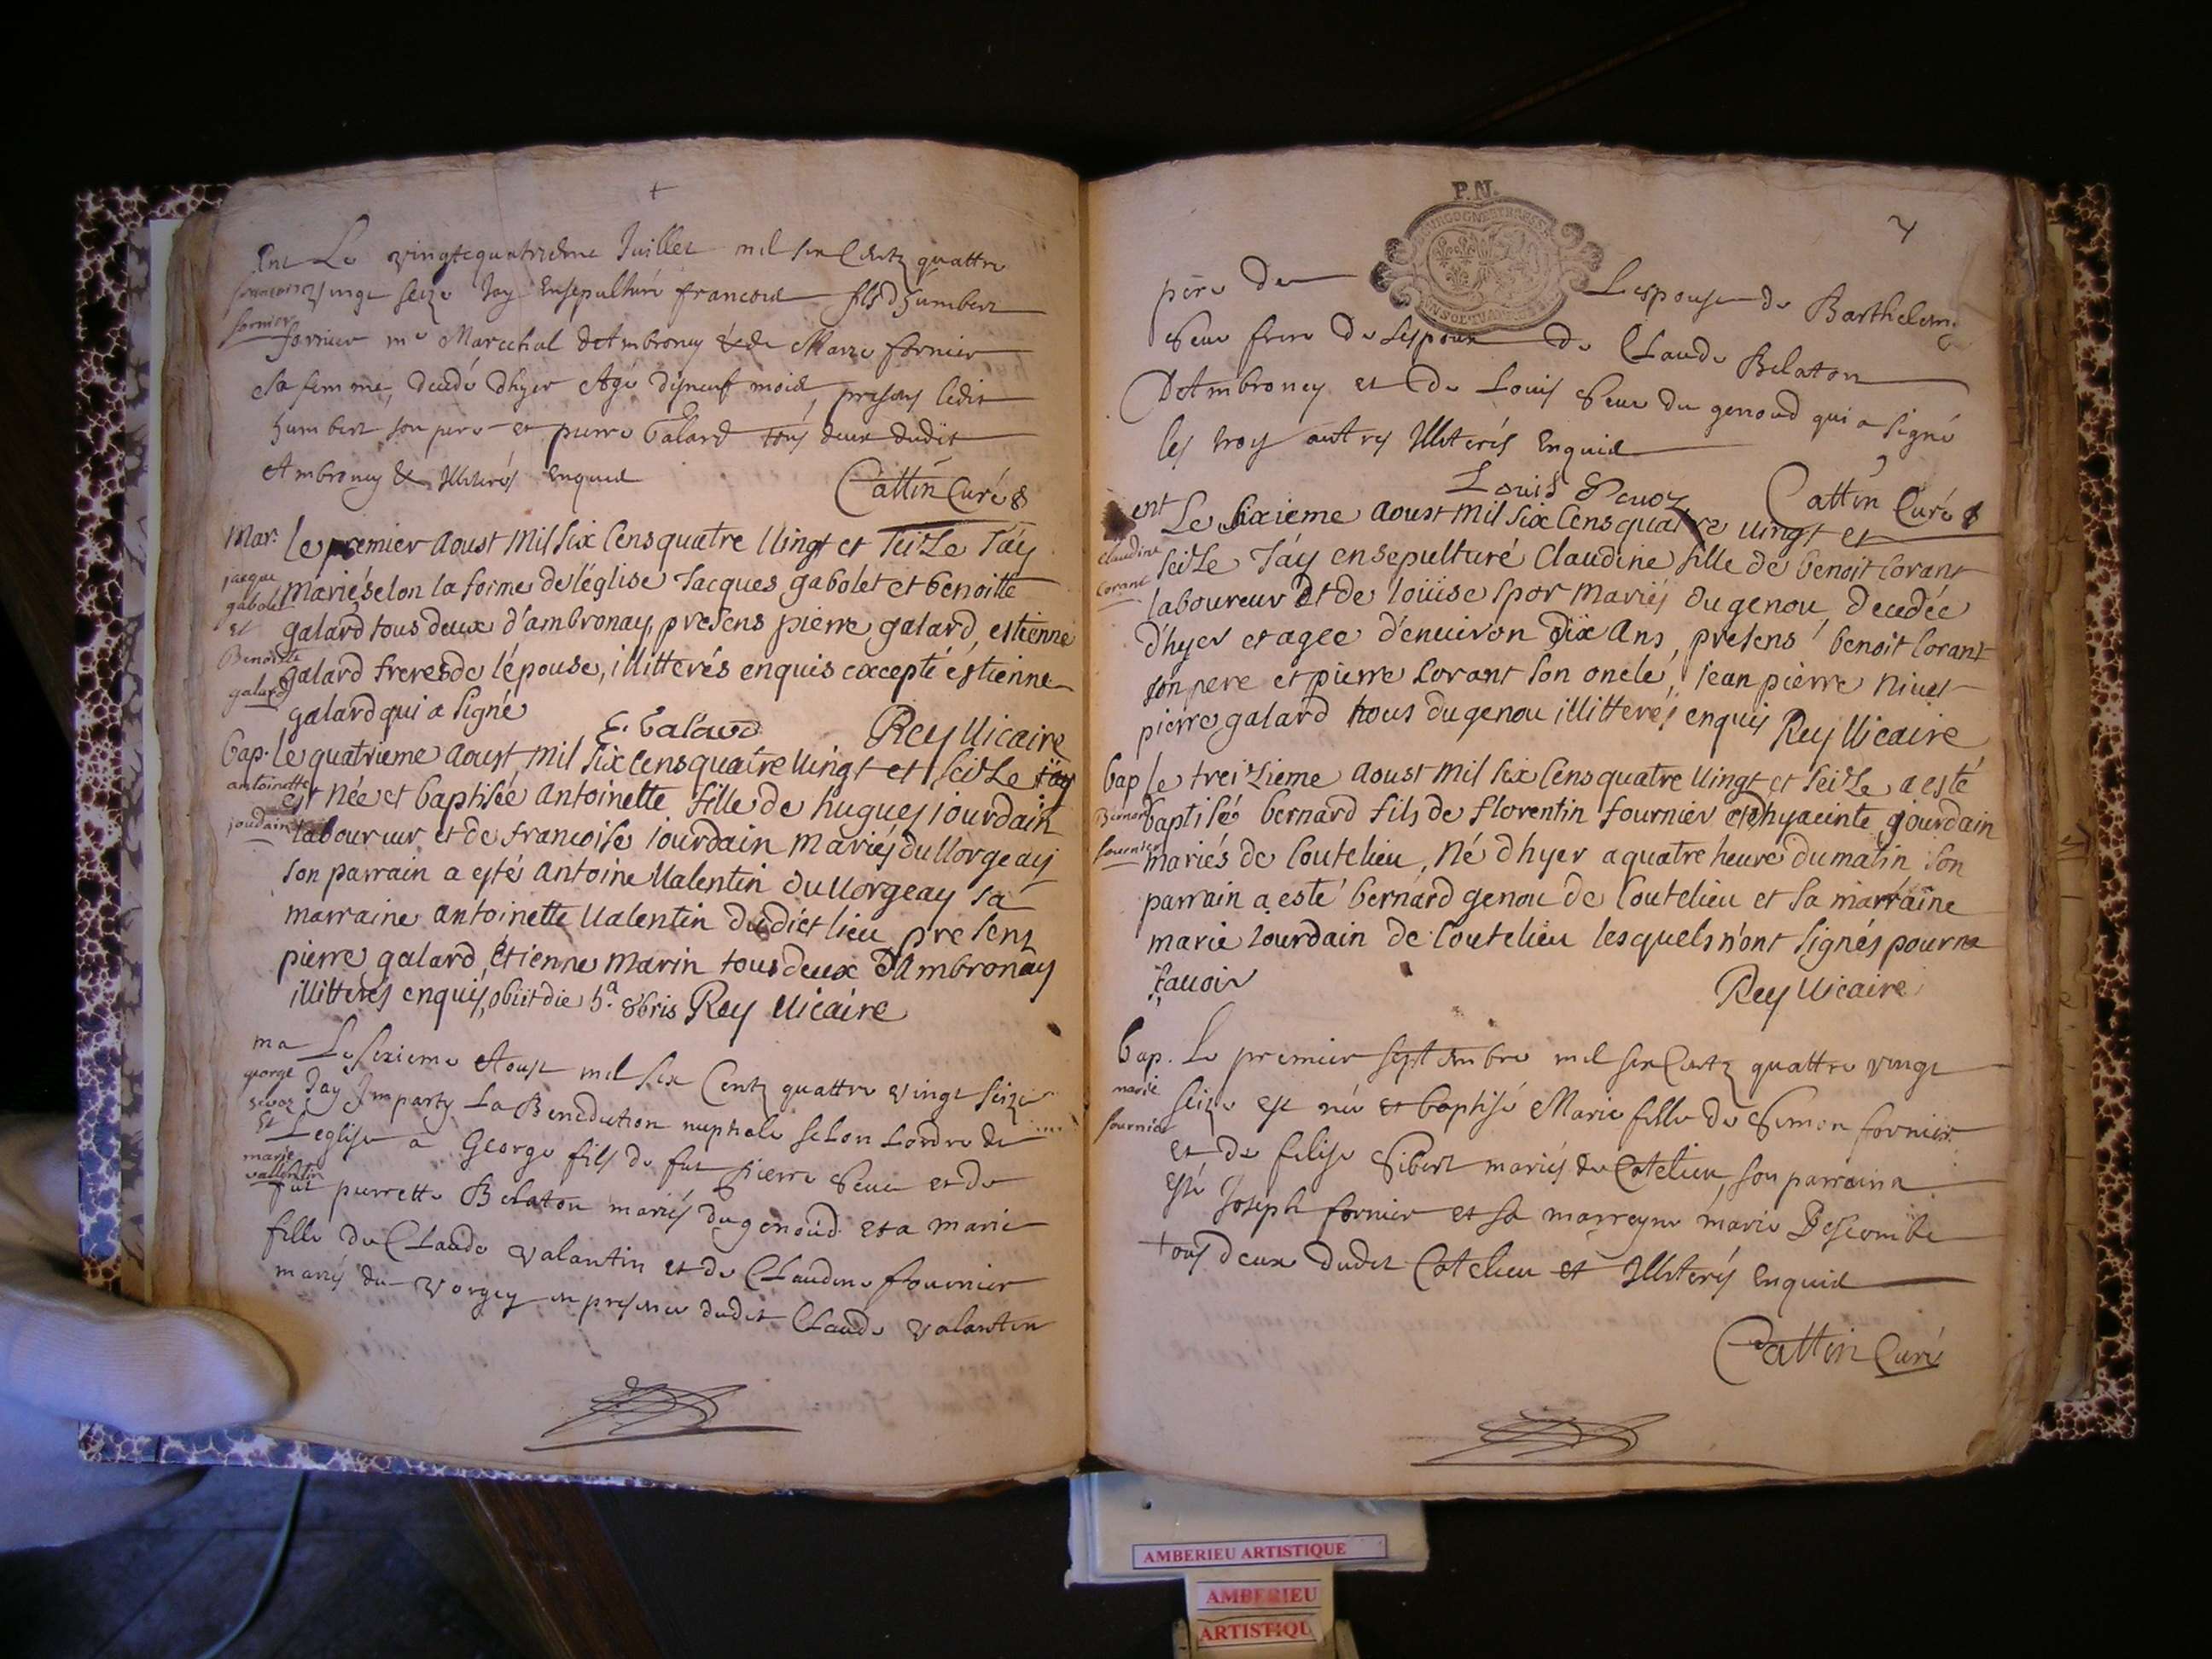 Ent Le vingtequatrieme Juillet mil six Centz quattre
francois vingt seize Jay Ensepulturé francois fils d'humbert
fornier fornier me Marechal d'Ambroney & de Marie fornier
sa femme, decedé dhyer Agé disneuf mois, presens ledit
humbert son pere et pierre Galard tous deux dudit
Ambroney & Illiterés Enquis Cattin Curé
Mar. le premier aoust mil six cens quatre vingt et seize J'ay
jacque marié selon la forme de l'église Jacques gabolet et benoitte
gabolet
et galard tous deux d'ambronay, presens pierre galard, estienne
Benoitte galard freres de l'épouse, illitterés enquis excepté estienne
galard galard qui a signé
E. Galard Rey Vicaire
bap. le quatrieme aoust mil six cens quatre vingt et seize
antoinette est née et baptisée antoinette fille de hugues jourdain
jourdain laboureur et de francoise jourdain mariés du Vorgeay
son parrain a esté antoine Valentin du Vorgeay sa
marraine antoinette Valentin dudict lieu presens
pierre galard Etienne marin tous deux d'Ambronay
illitterés enquis, obiit die 5.a 8bris Rey Vicaire
ma Le sixieme Aoust mil six Centz quattre vingt seize
george Jay Imparty La Benediction nuptiale selon Lordre de
et Leglise a George fils de fut pierre et de
marie
vallentin fut pierrette Belaton mariés du genoud et a marie
fille de Claude valantin et de Claudine fournier
mariés du vorgey en presence dudit Claude valantin
P.N.
pere de Lespouse de Barthelemy
frere de Lespoux de Claude Belaton
D'Ambroney et de Louis du genoud qui a signé
les troy autres Illiterés Enquis
Louis Cattin Curé
ent Le sixieme aoust mil six cens quatre vingt et
claudine seize J'ay ensepulturé Claudine fille de benoit corant
Corant laboureur et de loüise mariés du genou, decedée
d'hyer et agee d'enuiron dix ans, presens benoit corant
son pere et pierre corant son oncle, jean pierre
pierre galard tous du genou illitterés enquis Rey Vicaire
bap le treizieme aoust mil six cens quatre vingt et seize a esté
Bernard baptisé bernard fils de florentin fournier et d'hyacinte jourdain
fournier mariés de Coutelieu, né d'hyer a quatre heure du matin son
parrain a esté bernard genou de Coutelieu et sa marraine
marie Jourdain de Coutelieu lesquels n'ont signés pour ne
sauoir Rey Vicaire
bap. Le premier septembre mil six Centz quattre vingt
marie seize est née et baptisé Marie fille de Simon fornier
fournier et de felise Sibert mariés de Cotelieu, son parrain a
esté Joseph fornier et sa marreyne marie Descombe
tous deux dudit Cotelieu et Illiterés Enquis
Cattin Curé
AMBERIEU ARTISTIQUE
AMBERIEU
ARTISTIQU